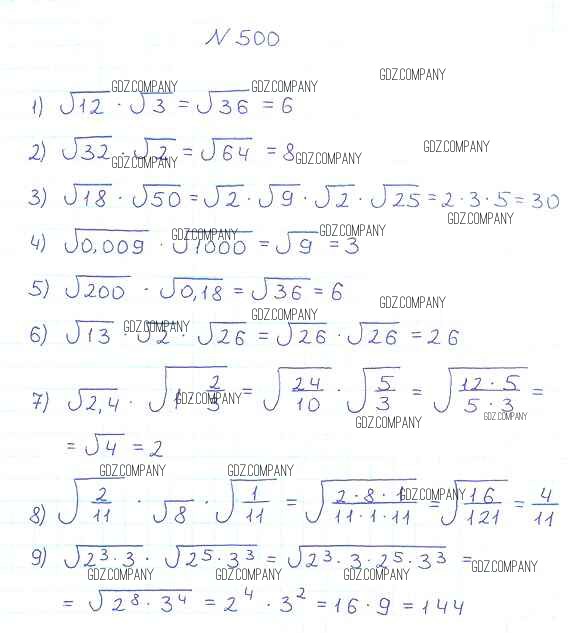 N 500
GDZ.COMPANY
GDZ.COMPANY GDZ.COMPANY
1) √12 · √3 = √36 = 6
GDZ.COMPANY
2) √32 · √2 = √64 = 8
GDZ.COMPANY GDZ.COMPANY
3) √18 · √50 = √2 · √9 · √2 · √25 = 2 · 3 · 5 = 30
GDZ.COMPANY
GDZ.COMPANY GDZ.COMPANY
4) √0,009 · √1000 = √9 = 3
5) √200 · √0,18 = √36 = 6
GDZ.COMPANY
GDZ.COMPANY GDZ.COMPANY
6) √13 · √2 · √26 = √26 · √26 = 26
7) √2,4 · √1 2/3 = √24/10 · √5/3 = √12 · 5/5 · 3 =
GDZ.COMPANY GDZ.COMPANY GDZ.COMPANY
= √4 = 2
GDZ.COMPANY GDZ.COMPANY
8) √2/11 · √8 · √1/11 = √2 · 8 · 1/11 · 1 · 11 = √16/121 = 4/11
GDZ.COMPANY
9) √2³ · 3 · √2⁵ · 3³ = √2³ · 3 · 2⁵ · 3³ =
GDZ.COMPANY GDZ.COMPANY GDZ.COMPANY GDZ.COMPANY
= √2⁸ · 3⁴ = 2⁴ · 3² = 16 · 9 = 144